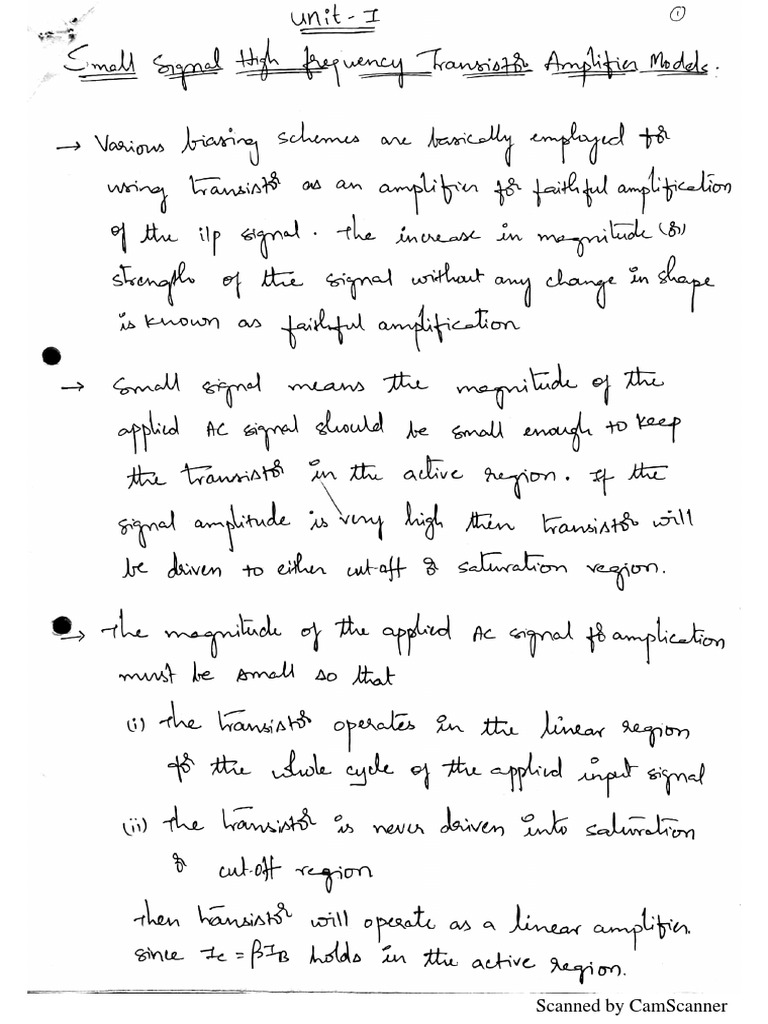 Unit-I
1
Small Signal High frequency Transistor Amplifier Models.
→ Various biasing schemes are basically employed for
using transistor as an amplifier for faithful amplification
of the i/p signal. The increase in magnitude (or)
strength of the signal without any change in shape
is known as faithful amplification
→ Small signal means the magnitude of the
applied AC signal should be small enough to keep
the transistor in the active region. If the
signal amplitude is very high then transistor will
be driven to either cut-off or saturation region.
→ The magnitude of the applied AC signal for amplication
must be small so that
(i) The transistor operates in the linear region
for the whole cycle of the applied input signal
(ii) The transistor is never driven into saturation
or cut-off region
Then transistor will operate as a linear amplifier.
since Ic = βIB holds in the active region.
Scanned by CamScanner